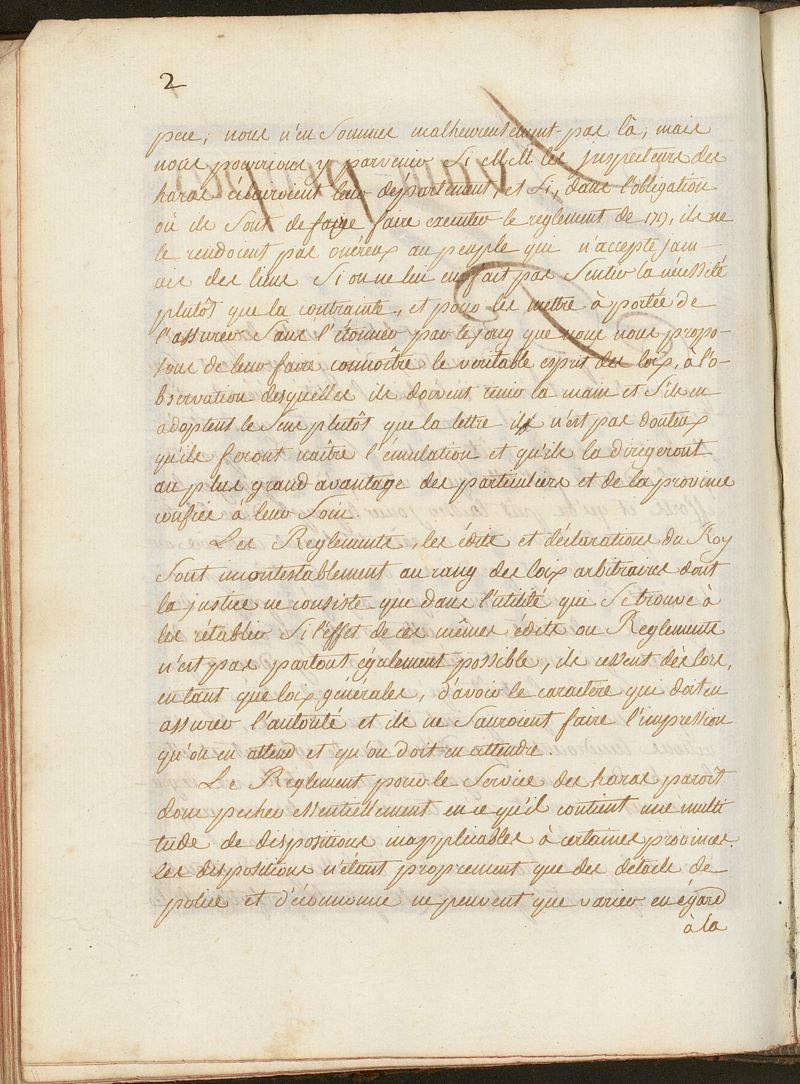 2
pere, nous n'en sommes malheureusement pas là, mais
nous pourrions y parvenir si MM. les inspecteurs des
haras éclairoient leur departement, et si, dans l'obligation
où ils sont de faire faire executer le reglement de 1717, ils ne
le rendoient pas onéreux au peuple qui n'accepte jam-
ais des liens si on ne lui en fait pas sentir la nécessité
plutôt que la contrainte, et pour les mettre à portée de
l'assurer sans l'étonner par le joug que nous nous propo-
sons de leur faire connoître le veritable esprit des loix, à l'o-
bservation desquelles ils doivent tenir la main et s'ils en
adoptent le sens plutôt que la lettre il n'est pas douteux
qu'ils feront naître l'émulation et qu'ils la dirigeront
au plus grand avantage des particuliers et de la province
confiée à leur soin.
Les Reglements, les édits et déclarations du Roy
sont incontestablement au rang des loix arbitraires dont
la justice ne consiste que dans l'utilité qui se trouve à
les rétablir si l'effet de ces mêmes édits ou Reglements
n'est pas partout également possible, ils cessent dès lors,
en tant que loix générales, d'avoir le caractere qui doit en
assurer l'autorité et ils ne sauroient faire l'impression
qu'on en attend et qu'on doit en attendre.
Le Reglement pour le Service des haras paroît
donc pecher essentiellement en ce qu'il contient une multi
tude de dispositions inapplicables à certaines provinces.
les dispositions n'étant proprement que des détails de
police et d'économie ne peuvent que varier en égard
à la